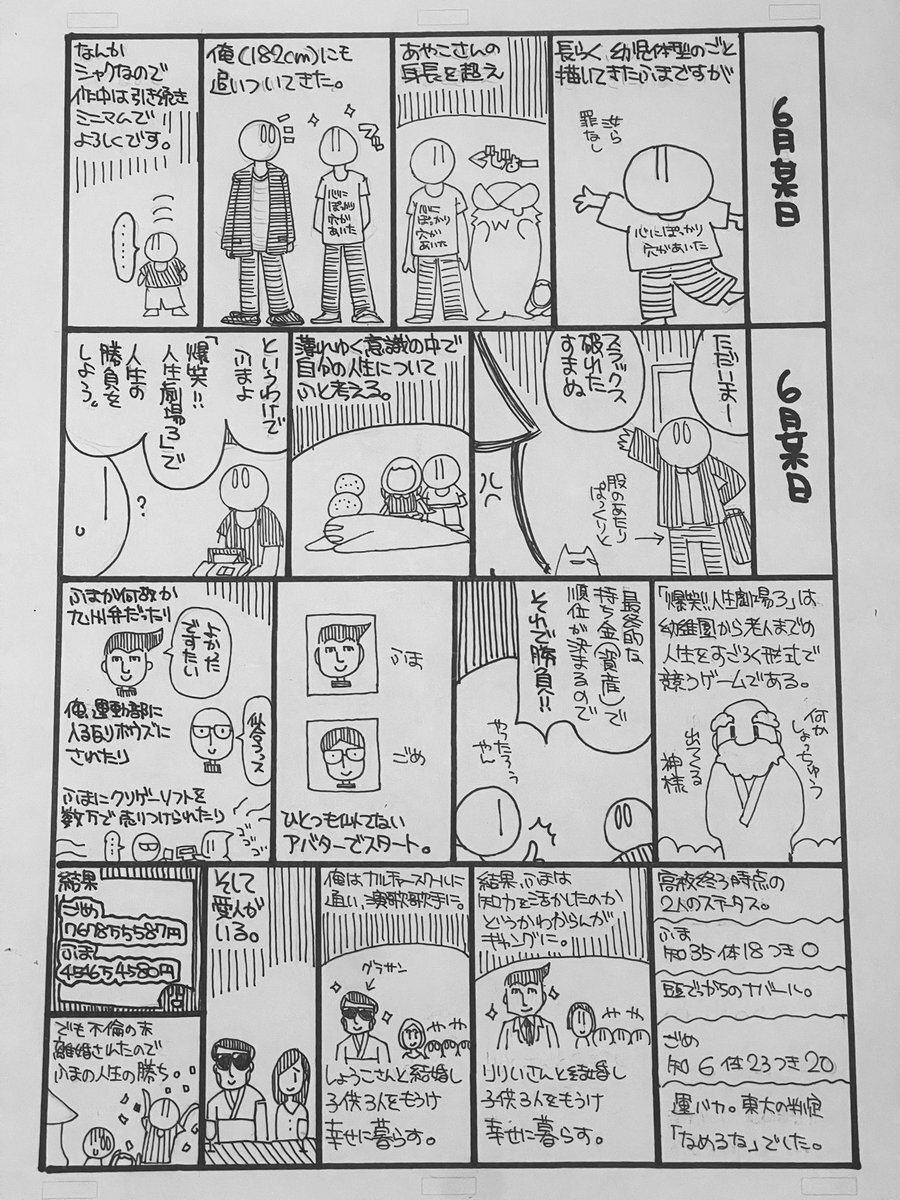 6月某日
長らく、幼児体型のごと
描いてきたふまですが
汝ら
罪なし
心にぽっかり
穴があいた
あやこさんの
身長を超え
ぐぬぬ…
心に
ぽっかり
穴が
あいた
俺(182cm)にも
追いついてきた。
心に
ぽっかり
穴が
あいた
なんか
シャクなので
作中は引き続き
ミニマムで
よろしくです。
……
6月某日
ただいまー
スラックス
破れた
すまぬ
股のあたり
ぱっくりと
薄れゆく意識の中で
自分の人生について
ふと考える。
というわけで
ふまよ
「爆笑!!
人生劇場3」で
人生の
勝負を
しよう。
?
「爆笑!!人生劇場3」は
幼稚園から老人までの
人生をすごろく形式で
競うゲームである。
何か
しょっちゅう
出てくる
神様
最終的な
持ち金(資産)で
順位が決まるので
それで勝負!!
やったろう
やん
ふま
ごめ
ひとつも似てない
アバターでスタート。
ふまが何故か
九州弁だったり
よかんだ
ですたい
俺、運動部に
入るなりボウズに
されたり
似合うっス
ふまにクソゲーソフトを
数万で売りつけられたり
…
ゴゴゴ
高校終了時点の
2人のステータス。
ふま
知35 体18 つき0
頭でっかちのナバール。
ごめ
知6 体23 つき20
運バカ。東大の判定
「なめるな」でした。
結果、ふまは
知力を活かしたのか
どうかわからんが
ギャングに。
やや
りりいさんと結婚し
子供3人をもうけ
幸せに暮らす。
俺はカルチャースクールに
通い、演歌歌手に。
グラサン
やや
しょうこさんと結婚し
子供3人をもうけ
幸せに暮らす。
そして
愛人が
いる。
結果
ごめ
7678万5587円
ふま
4546万4580円
でも不倫の末
離婚されたので
ふまの人生の勝ち。